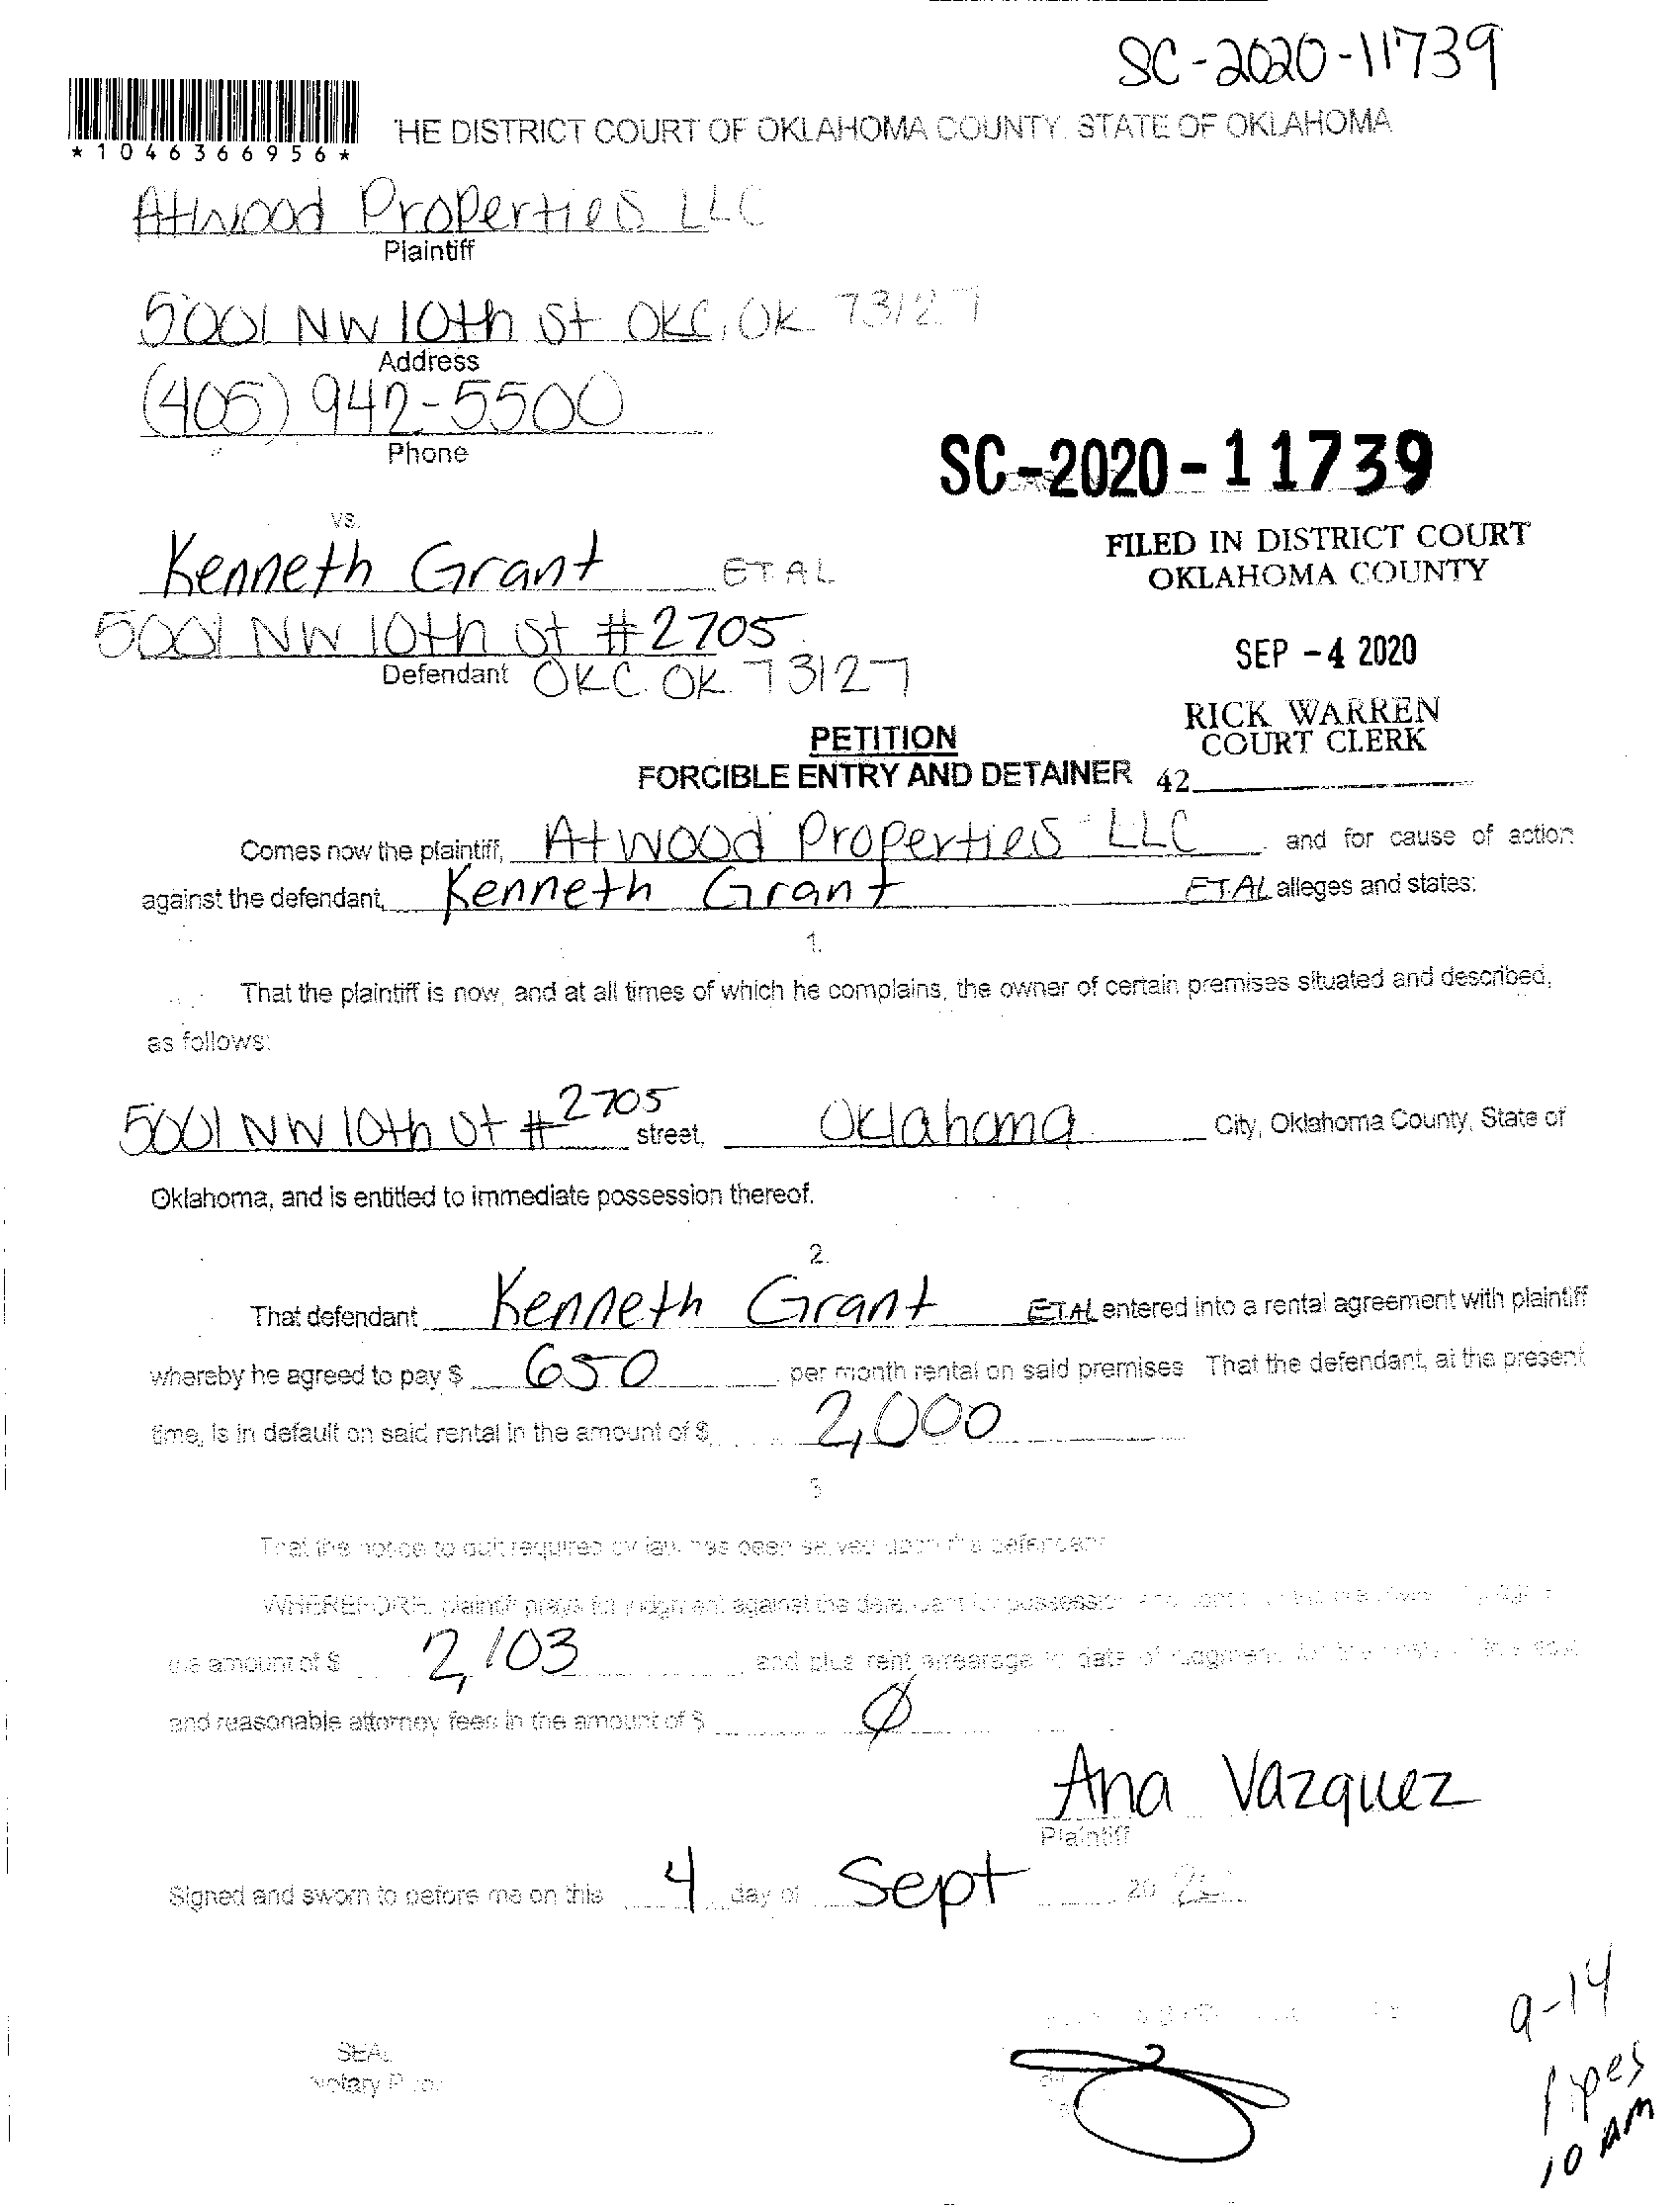 SC-2020-11739
*1046366956*
HE DISTRICT COURT OF OKLAHOMA COUNTY, STATE OF OKLAHOMA
Atwood Properties LLC
Plaintiff
5001 NW 10th St OKC, OK 73127
Address
(405) 942-5500
Phone
SC-2020-11739
vs.
FILED IN DISTRICT COURT
OKLAHOMA COUNTY
Kenneth Grant ET AL
5001 NW 10th St #2705
SEP -4 2020
Defendant OKC. OK. 73127
RICK WARREN
COURT CLERK
PETITION
FORCIBLE ENTRY AND DETAINER 42
Comes now the plaintiff, Atwood Properties LLC and for cause of action
against the defendant, Kenneth Grant ET.AL alleges and states:
1.
That the plaintiff is now, and at all times of which he complains, the owner of certain premises situated and described,
as follows:
5001 NW 10th St # 2705 street, Oklahoma City, Oklahoma County, State of
Oklahoma, and is entitled to immediate possession thereof.
2.
That defendant Kenneth Grant ET.AL entered into a rental agreement with plaintiff
whereby he agreed to pay $ 650 per month rental on said premises That the defendant, at the present
time, is in default on said rental in the amount of $ 2,000
3
That the notice to quit required by law has been served upon the defendant
WHEREFORE, plaintiff prays for judgment against the defendant for possession and
the amount of $ 2,103 and plus rent arrearage to date of judgment,
and reasonable attorney fees in the amount of $ Ø
Ana Vazquez
Plaintiff
Signed and sworn to before me on this 4 day of Sept 20 20
9-14
SEAL
Notary
Pipes
10 AM